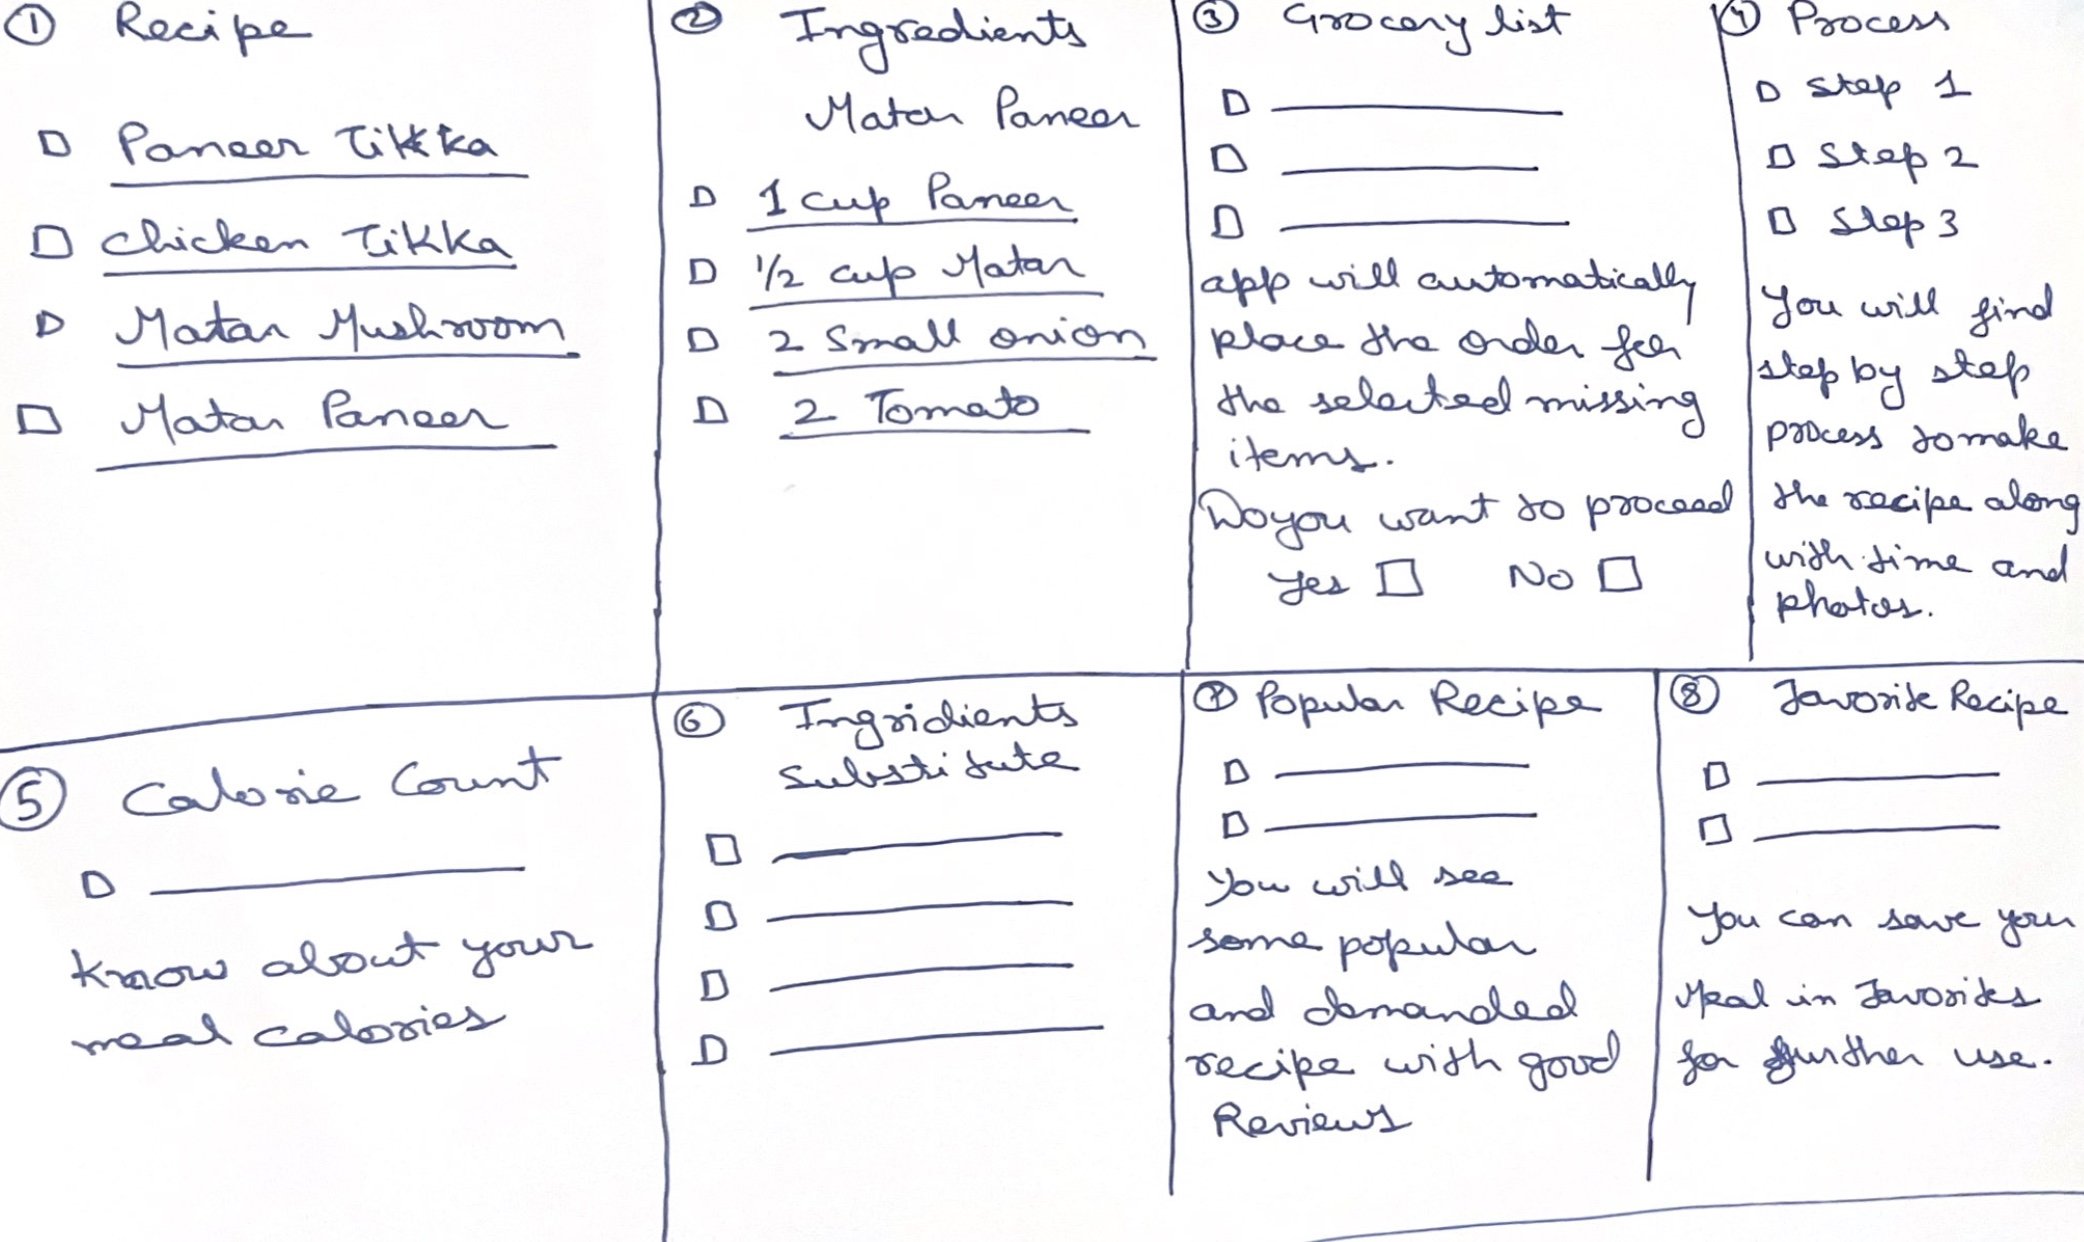 ① Recipe
Paneer Tikka
Chicken Tikka
Matar Mushroom
Matar Paneer
② Ingredients
Matar Paneer
1 cup Paneer
1/2 cup Matar
2 Small onion
2 Tomato
③ Grocery list
app will automatically
place the order for
the selected missing
items.
Do you want to proceed
Yes No
④ Process
Step 1
Step 2
Step 3
You will find
step by step
process to make
the recipe along
with time and
photos.
⑤ Calorie Count
Know about your
meal calories
⑥ Ingridients
substitute
⑦ Popular Recipe
You will see
some popular
and demanded
recipe with good
Reviews
⑧ Favorite Recipe
You can save your
Meal in Favorites
for further use.